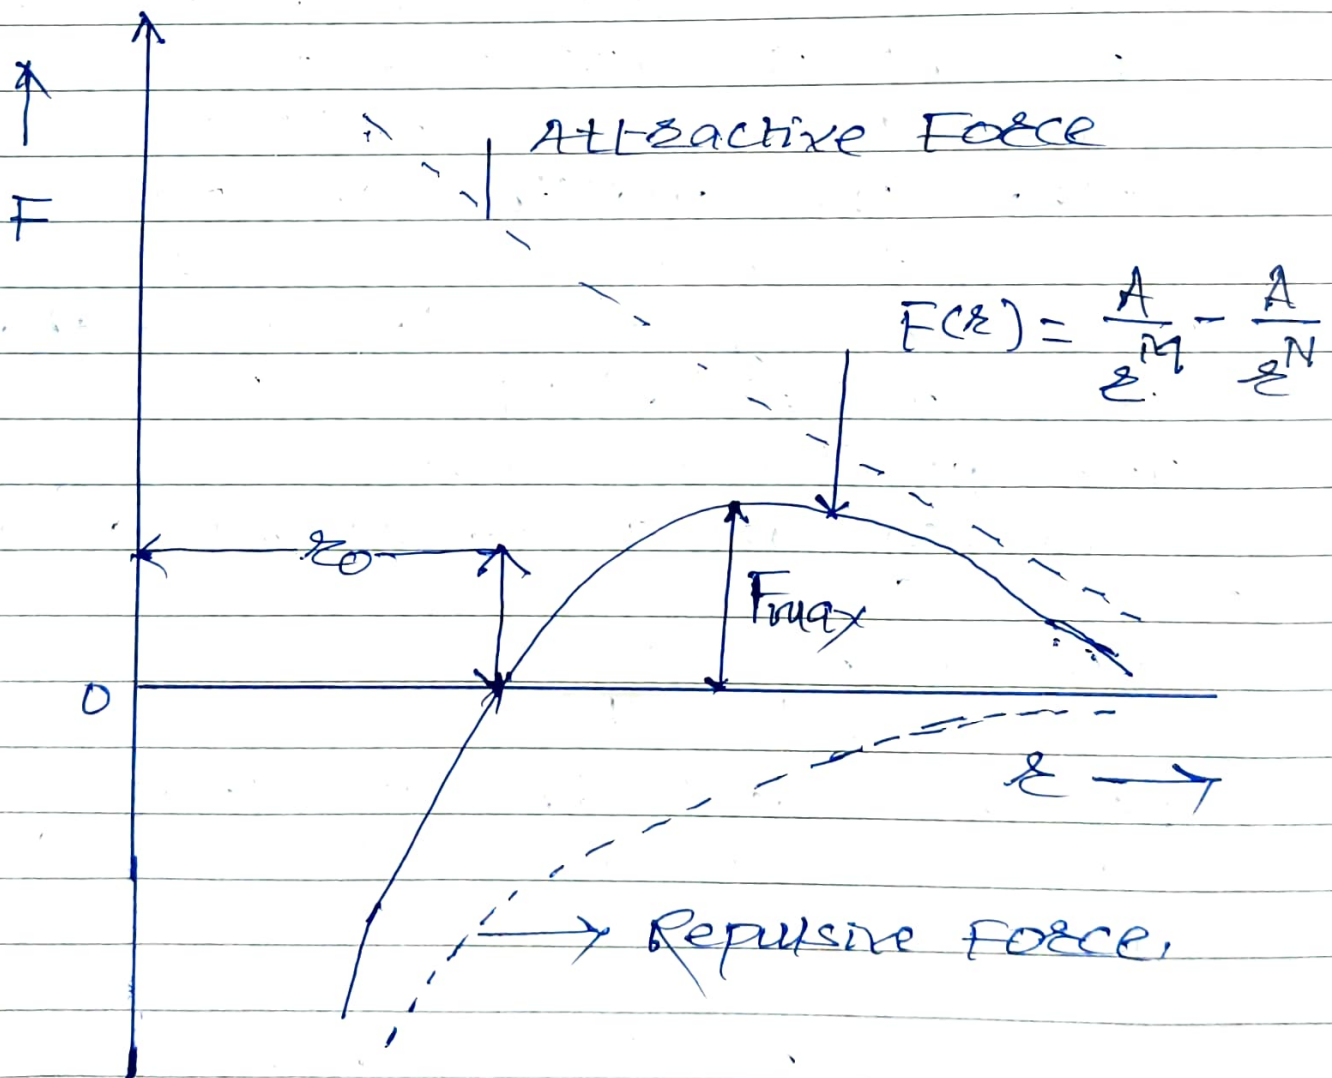 F
Attractive Force
F(r) = A/r^M - A/r^N
r0
Fmax
0
r →
Repulsive Force.